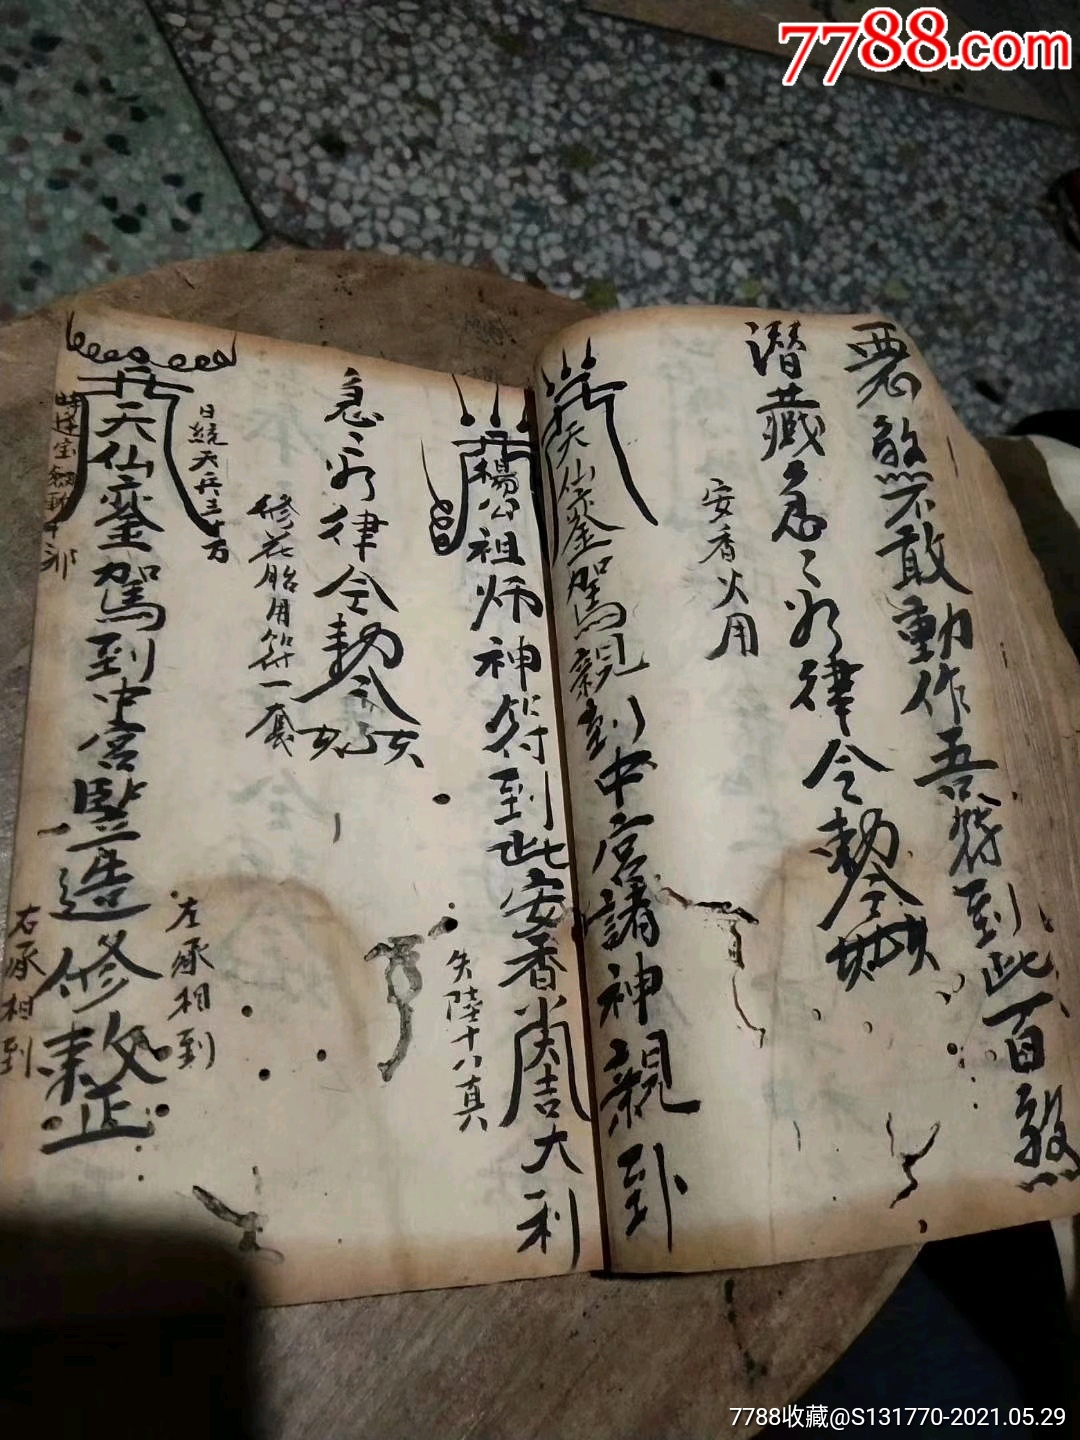 7788.com
惡煞不敢動作吾符到此百煞
潜藏急々如律令勅令
安香火用
天仙鑾駕親到中宮請神親到
楊公祖师神符到此安香火大吉大利
失陸十八真
急如律令勅令
修花胎用符一套
日統天兵三十万
天仙鑾駕到中宮監造修整
左承相到
右承相到
7788收藏@S131770-2021.05.29